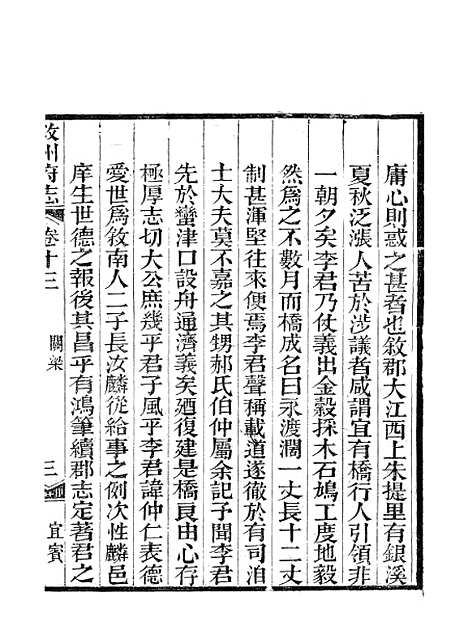 庸心則惑之甚者也敘郡大江西上朱提里有銀溪
夏秋泛漲人苦於涉議者咸謂宜有橋行人引領非
一朝夕矣李君乃仗義出金穀採木石鳩工度地毅
然為之不數月而橋成名曰永渡濶一丈長十二丈
制甚渾堅往來便焉李君聲稱載道遂徹於有司洎
士大夫莫不嘉之其甥郝氏伯仲屬余記予聞李君
先於蠻津口設舟通濟義矣廼復建是橋良由心存
極厚志切大公庶幾乎君子風乎李君諱仲仁表德
愛世為敘南人二子長汝麟從給事之例次性麟邑
庠生世德之報後其昌乎有鴻筆續郡志定著君之
敘州府志
卷十三
關梁
三
宜賓